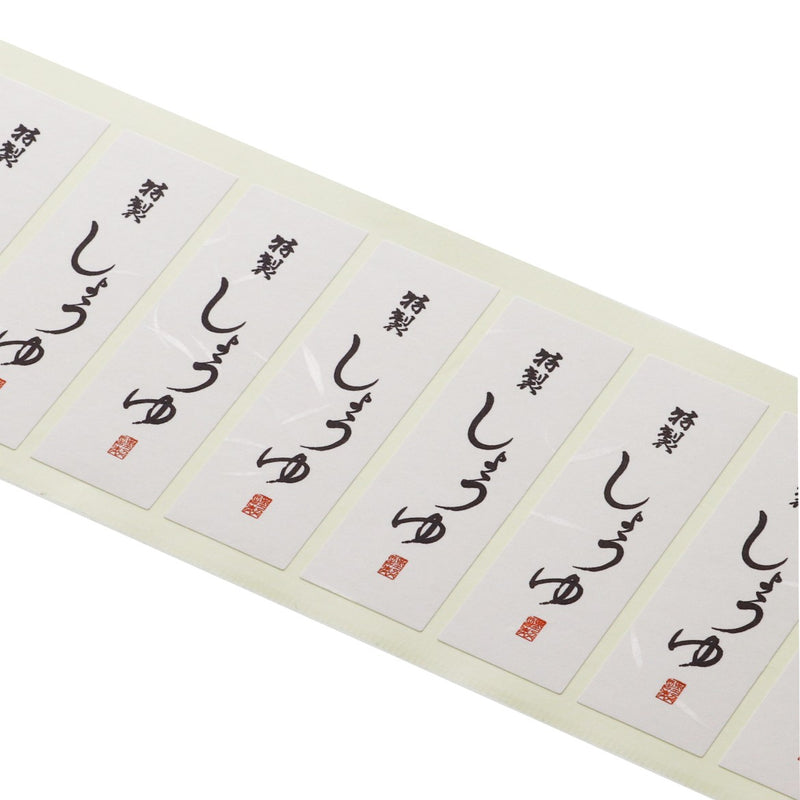 特製
しょうゆ
特製
しょうゆ
特製
しょうゆ
特製
しょうゆ
特製
しょうゆ
特製
しょうゆ
しょうゆ